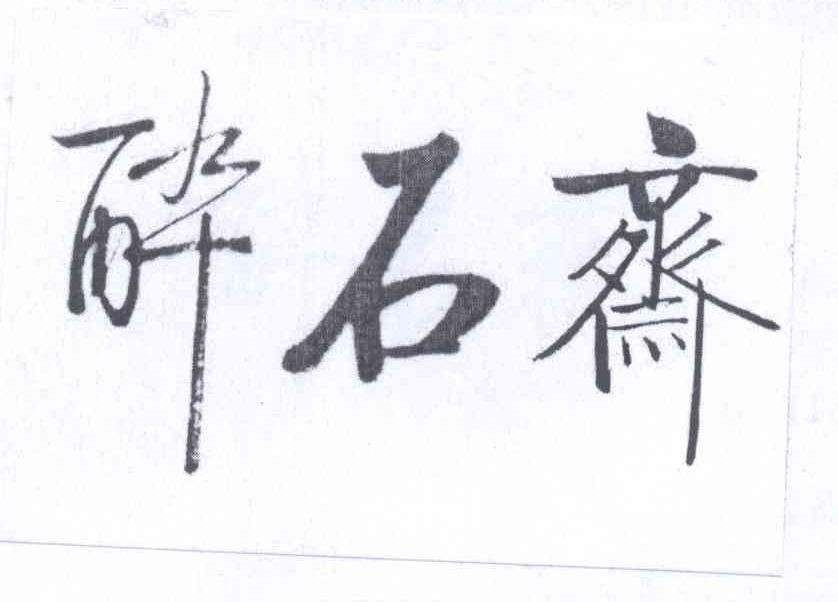 醉石齋